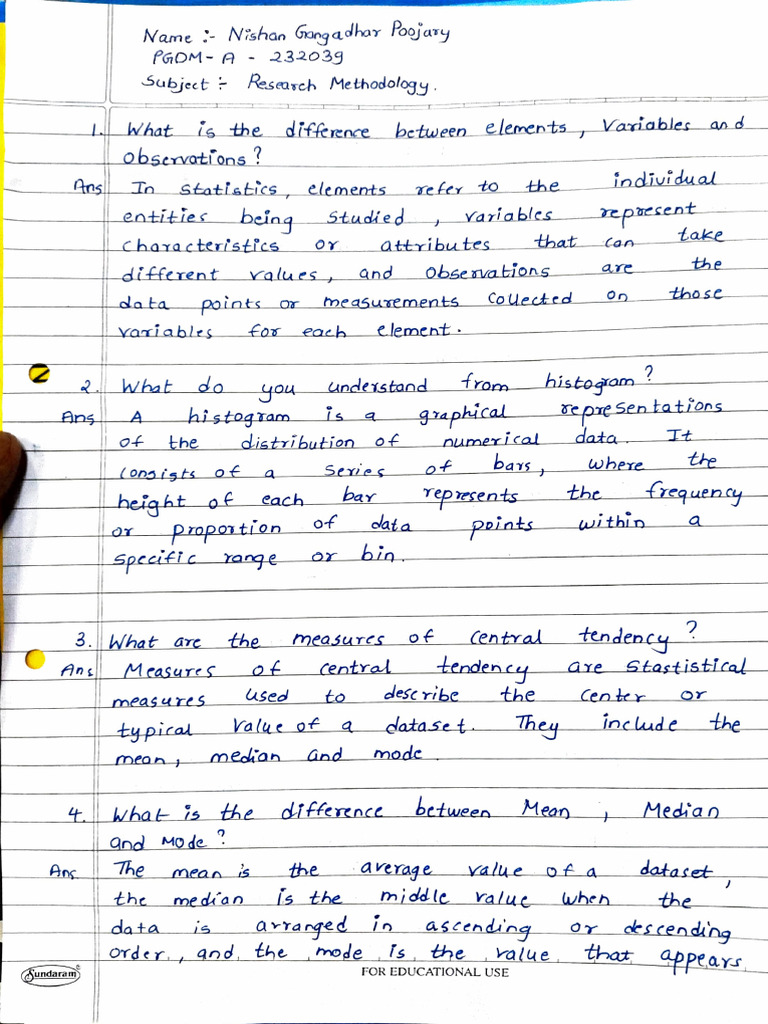 Name :- Nishan Gangadhar Poojary
PGDM - A - 232039
Subject :- Research Methodology.
1. What is the difference between elements, Variables and
observations?
Ans In statistics, elements refer to the individual
entities being studied, variables represent
characteristics or attributes that can take
different values, and observations are the
data points or measurements collected on those
variables for each element.
2. What do you understand from histogram?
Ans A histogram is a graphical representations
of the distribution of numerical data. It
consists of a series of bars, where the
height of each bar represents the frequency
or proportion of data points within a
specific range or bin.
3. What are the measures of central tendency?
Ans Measures of central tendency are Stastistical
measures used to describe the center or
typical value of a dataset. They include the
mean, median and mode.
4. What is the difference between Mean, Median
and Mode?
Ans The mean is the average value of a dataset,
the median is the middle value when the
data is arranged in ascending or descending
order, and the mode is the value that appears
Sundaram FOR EDUCATIONAL USE